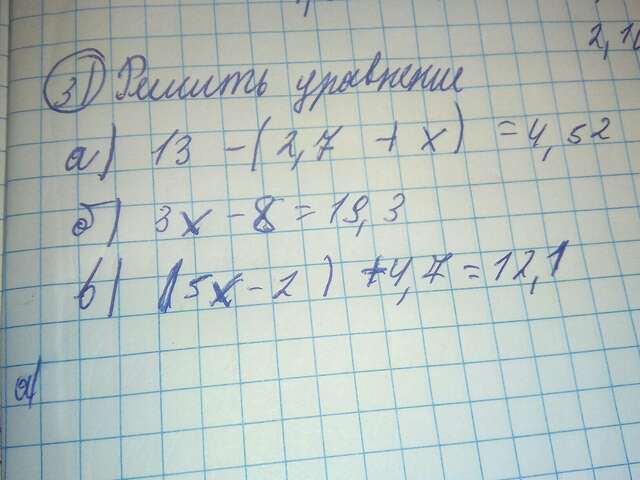 2,1
3) Решить уравнение
а) 13 - (2,7 + х) = 4,52
б) 3х - 8 = 19,3
в) (5х - 2) + 4,7 = 12,1
а)